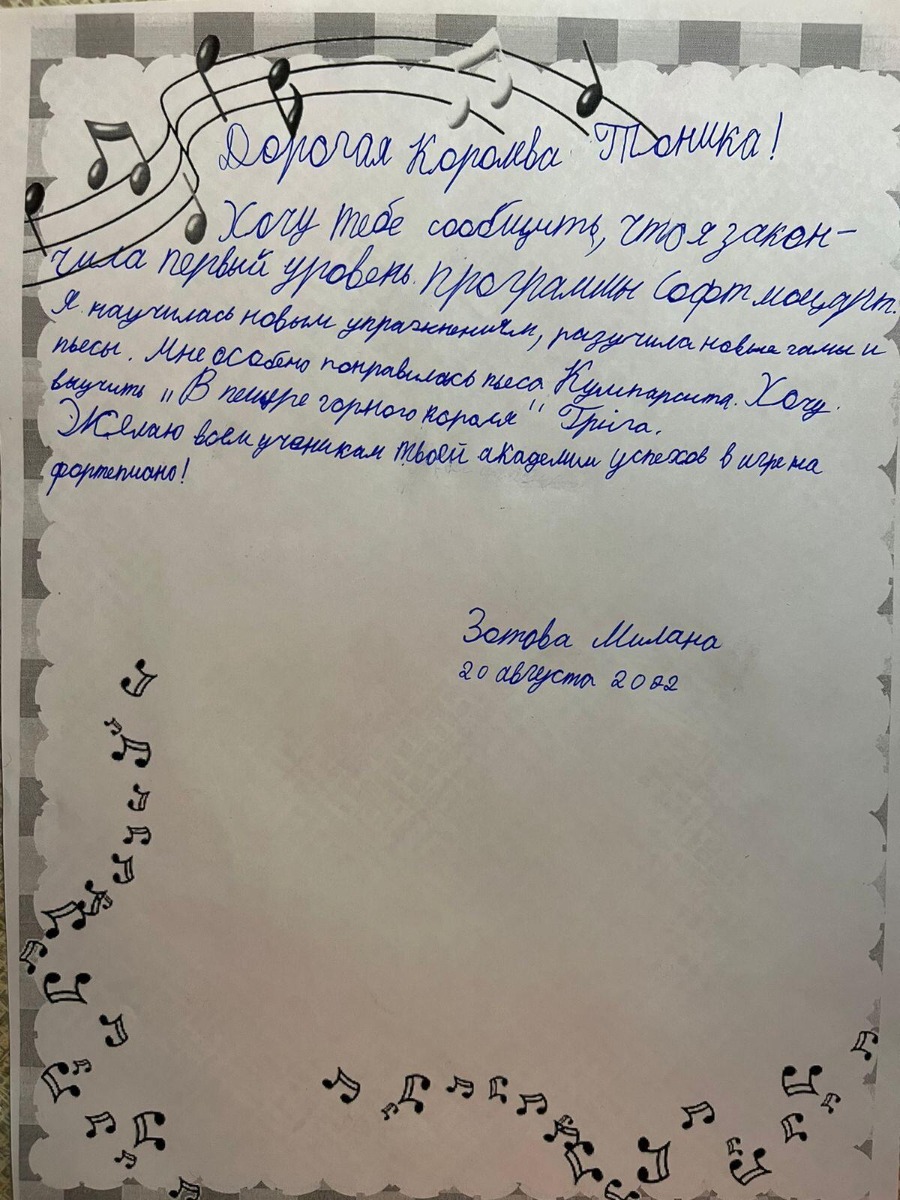 Дорогая Королева Тоника!
Хочу тебе сообщить, что я закон-
чила первый уровень программы Софт моцарт.
Я научилась новым упражнениям, разучила новые гамы и
пьесы. Мне особено понравилась пьеса Кумпарсита. Хочу
выучить "В пещере горного короля" Гріга.
Желаю всем ученикам твоей академии успехов в игре на
фортепиано!
Зотова Милана
20 августа 2022